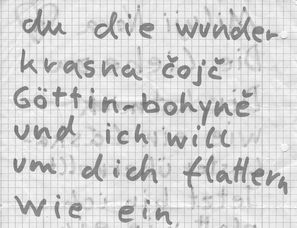 du die wunder
krasna čojč
Göttin-bohyně
und ich will
um dich flattern
wie ein